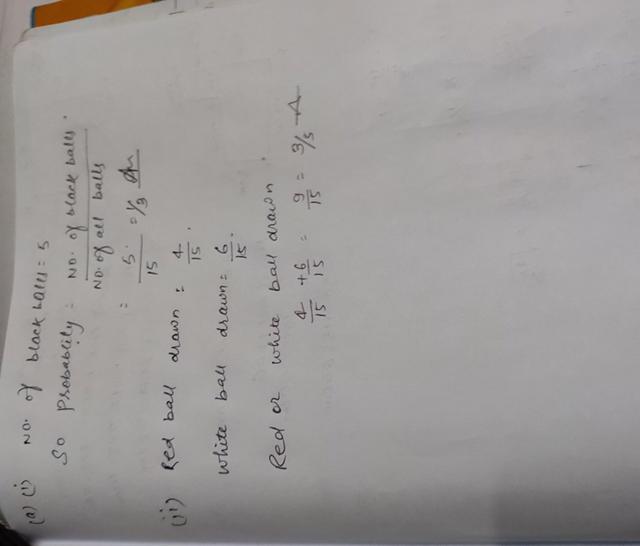 (a) (i) No. of black balls = 5
So Probability = No. of black balls / No. of all balls
= 5/15 = 1/3 Ans
(ii) Red ball drawn = 4/15.
White ball drawn = 6/15.
Red or white ball drawn.
4/15 + 6/15 = 9/15 = 3/5 A